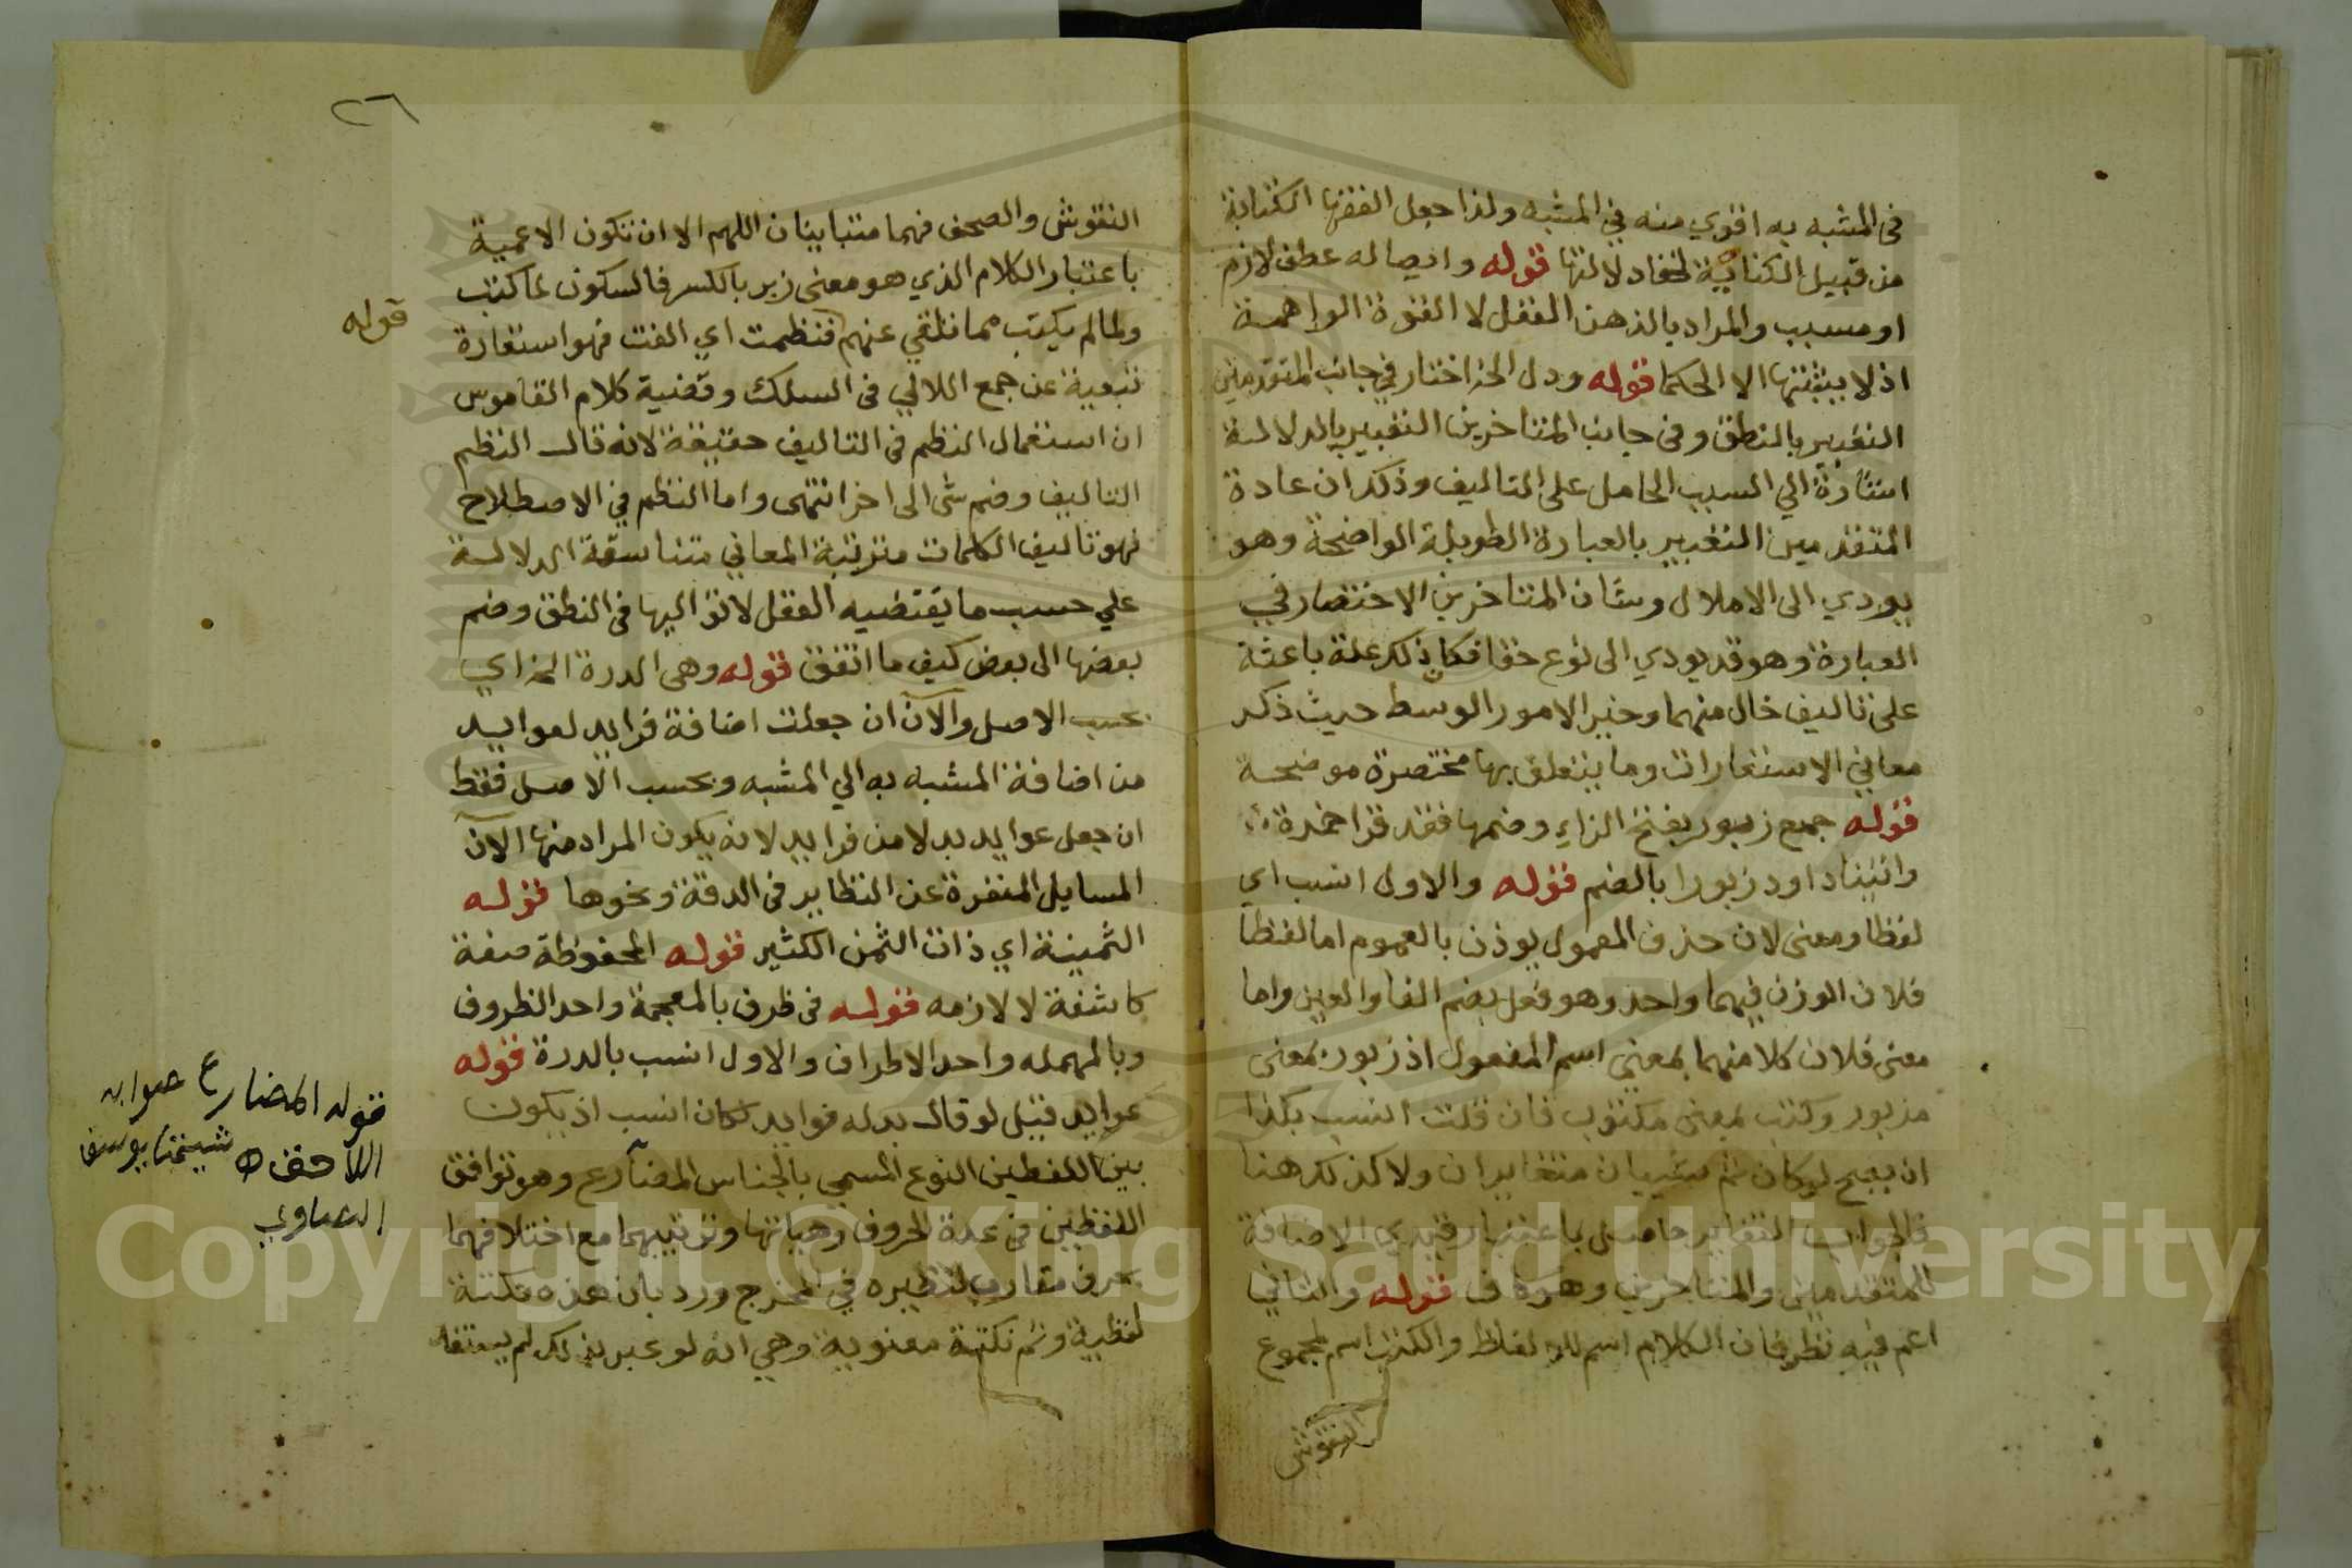 في المشبه به اقوي منه في المشبه ولذا جعل الفقها الكتابة
من قبيل الكناية لخفا دلالتها قوله وايصاله عطف لازم
او مسبب والمراد بالذهن العقل لا القوة الواهمة
اذ لا يثبتها الا الحكما قوله ودل الخ اختار في جانب المتقدمين
التعبير بالنطق وفي جانب المتاخرين التعبير بالدلالة
اشارة الي السبب الحامل على التاليف وذكر ان عادة
المتقدمين التعبير بالعبارة الطويلة الواضحة وهو
يودي الى الاملال وشان المتاخرين الاختصار في
العبارة وهو قد يودي الى نوع خفا فكان ذلك علة باعثة
على تاليف خال منهما وخير الامور الوسط حيث ذكر
معاني الاستعارات وما يتعلق بها مختصرة موضحة
قوله جمع زبور بفتح الزاي وضمها فقد قرا حمزة
واتينا داود زبورا بالضم قوله والاول انسب اي
لفظا ومعنى لان حذف المعمول يوذن بالعموم اما لفظا
فلان الوزن فيهما واحد وهو فعل بضم الفا والعين واما
معنى فلان كلا منهما بمعنى اسم المفعول اذ زبور بمعنى
مزبور وكتب بمعنى مكتوب فان قلت انسب بكذا
ان يصح لو كان ثم شييان متغايران ولا كذلك هنا
فالجواب التغاير حاصل باعتبار قيدي الاضافة
للمتقدمين والمتاخرين وهو كاف قوله والثاني
اعم فيه نظر فان الكلام اسم للالفاظ والكتب اسم لمجموع
النقوش
٢٦
النقوش والصحف فهما متباينان اللهم الا ان تكون الاعمية
باعتبار الكلام الذي هو معنى زبر بالكسر فالسكون لما كتب
ولما لم يكتب مما تلقي عنهم فنظمت اي الفت فهو استعارة
تبعية عن جمع اللالي في السلك وقضية كلام القاموس
ان استعمال النظم في التاليف حقيقة لانه قال النظم
التاليف وضم شى الى اخر انتهى واما النظم في الاصطلاح
فهو تاليف الكلمات مترتبة المعاني متناسقة الدلالة
علي حسب ما يقتضيه العقل لا تواليها في النطق وضم
بعضها الى بعض كيف ما اتفق قوله وهي الدرة الخ اي
بحسب الاصل والآن ان جعلت اضافة فرايد لعوايد
من اضافة المشبه به الي المشبه وبحسب الاصل فقط
ان جعل عوايد بدلا من فرايد لانه يكون المراد منها الآن
المسايل المنفردة عن النظاير في الدقة ونحوها قوله
الثمينة اي ذات الثمن الكثير قوله المحفوظة صفة
كاشفة لا لازمه قوله في ظرف بالمعجمة واحد الظروف
وبالمهمله واحد الاطراف والاول انسب بالدرة قوله
عوايد قيل لو قال بدله فوايد لكان انسب اذ يكون
بين اللفظين النوع المسمي بالجناس المضارع وهو توافق
اللفظين في عدة الحروف وهياتها وترتيبهما مع اختلافهما
بحرف مقارب لنظيره في المخرج ورد بان هذه نكتة
لفظية وثم نكتة معنوية وهي انه لو عبر بذلك لم يستفد
قوله
قوله المضارع صوابه
اللاحق اه شيخنا يوسف
Copyright © King Saud University